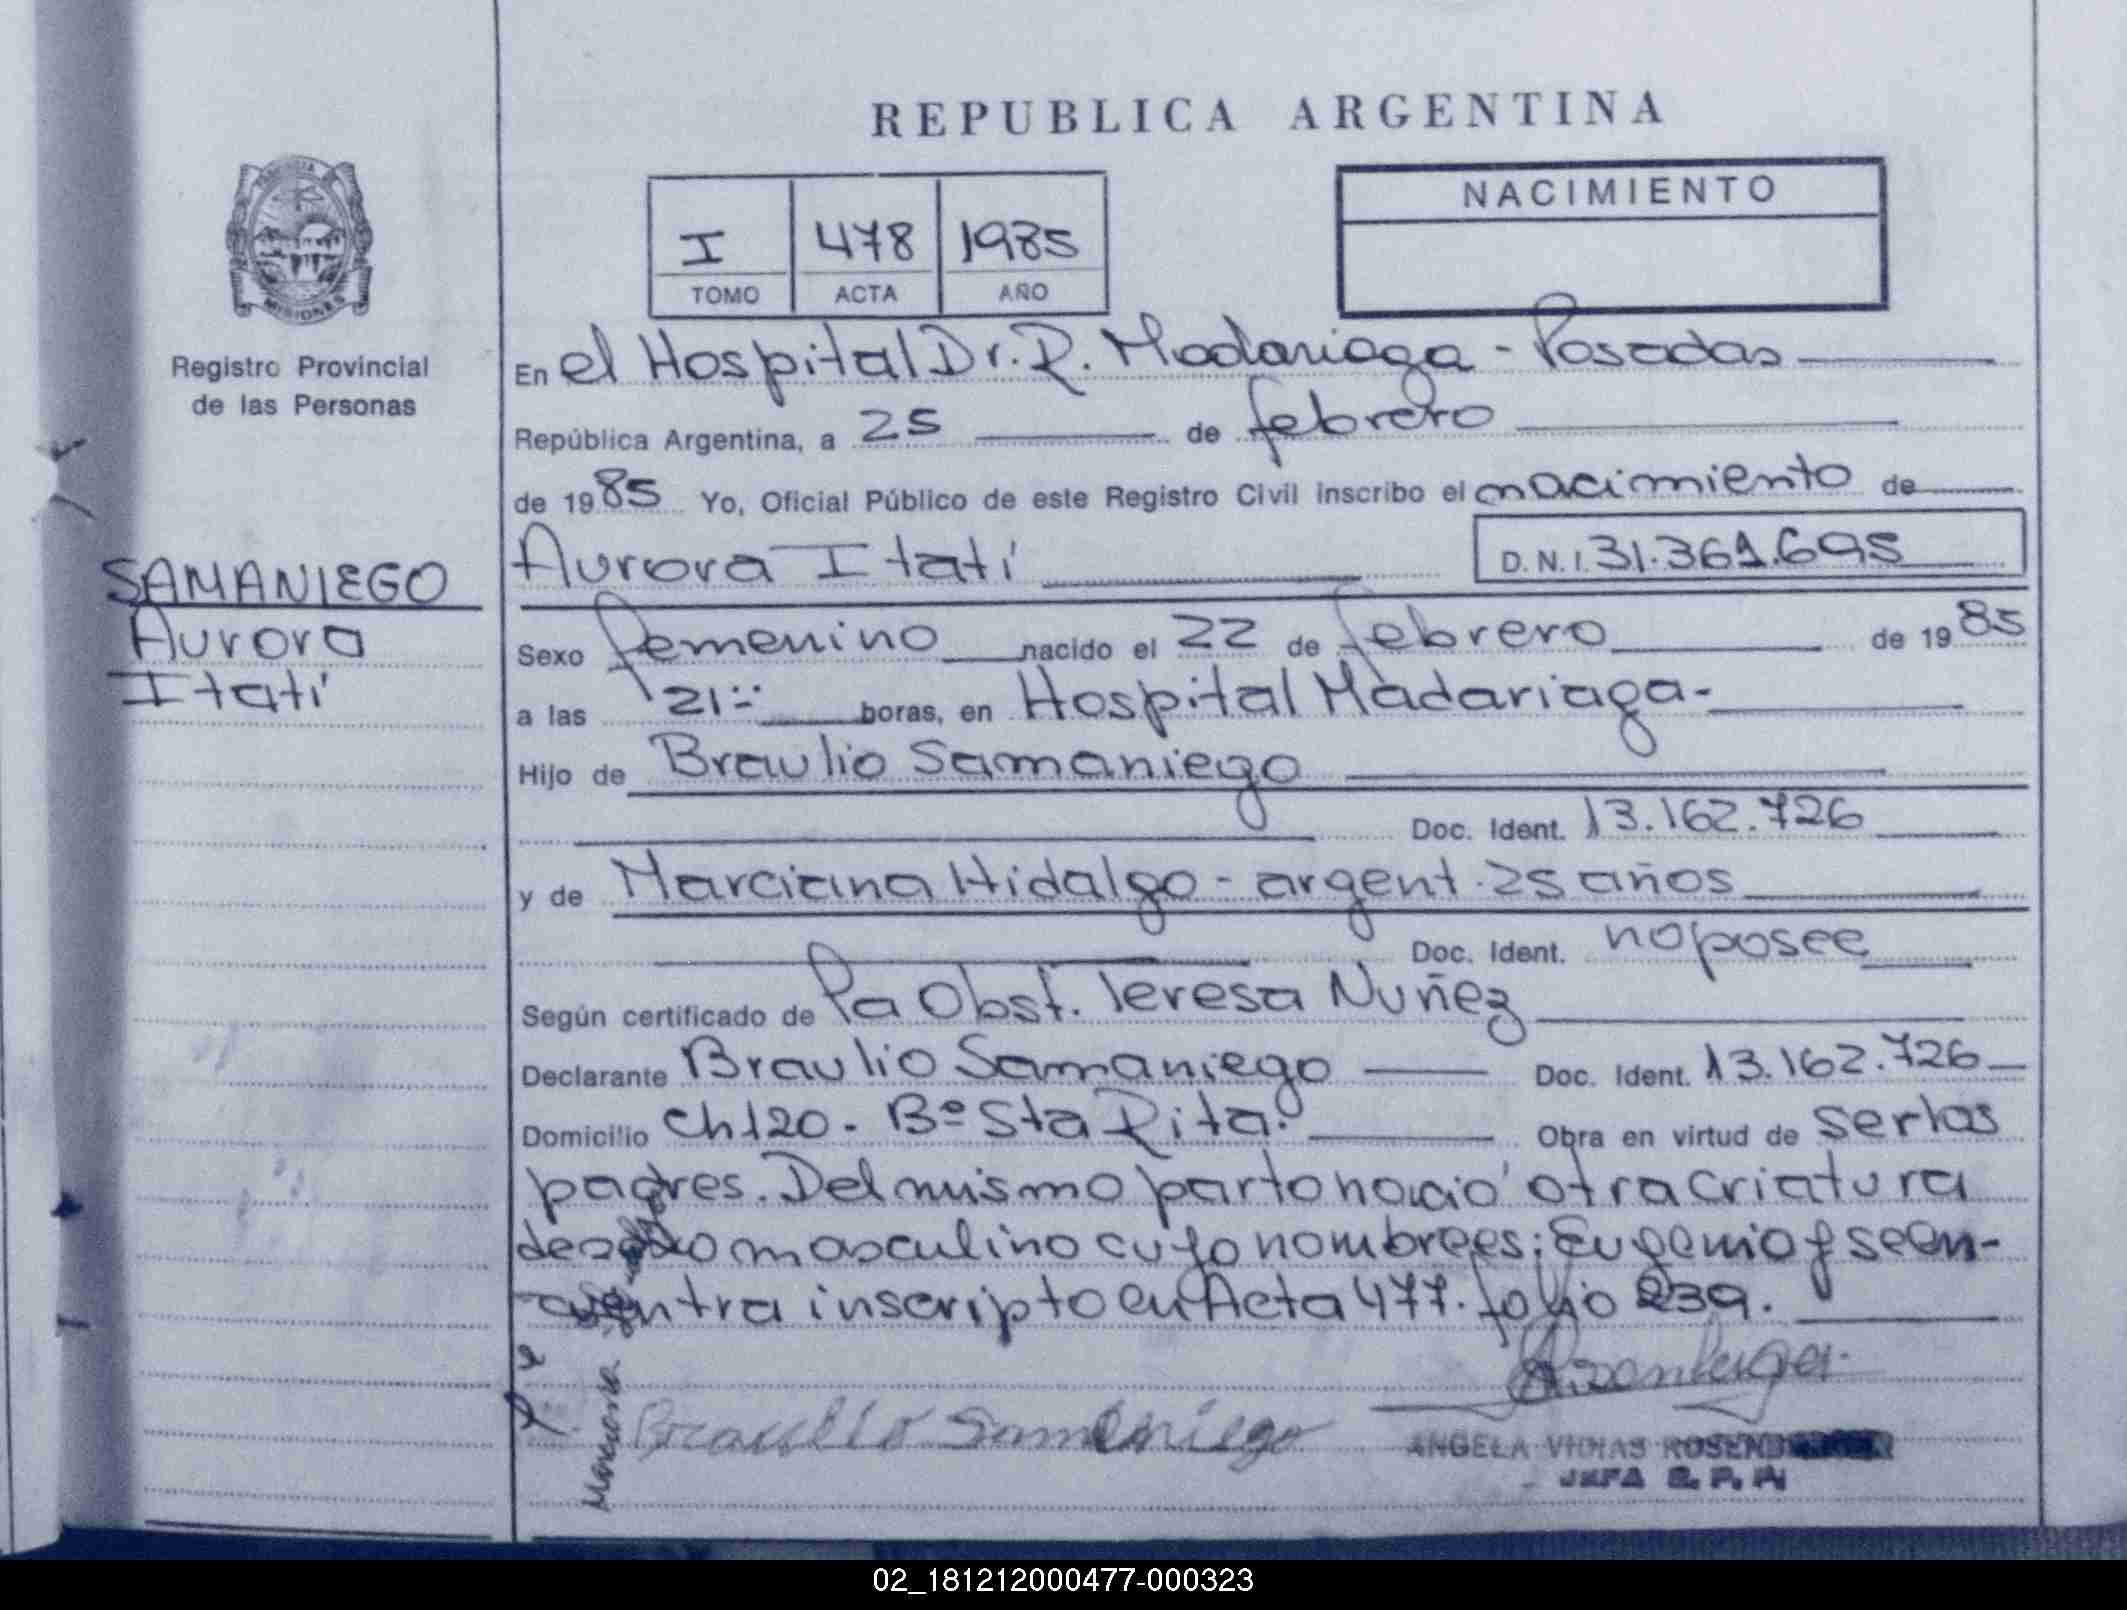 REPUBLICA ARGENTINA
PROVINCIA
MISIONES
Registro Provincial
de las Personas
I 478 1985
TOMO ACTA AÑO
NACIMIENTO
En el Hospital Dr. R. Madariaga - Posadas
República Argentina, a 25 de febrero
de 1985 Yo, Oficial Público de este Registro Civil inscribo el nacimiento de
SAMANIEGO
Aurora
Itatí
Aurora Itatí D.N.I. 31.361.695
Sexo femenino nacido el 22 de febrero de 1985
a las 21:- horas, en Hospital Madariaga-
Hijo de Braulio Samaniego
Doc. Ident. 13.162.726
y de Marciana Hidalgo - argent. 25 años
Doc. Ident. no posee
Según certificado de la Obst. Teresa Nuñez
Declarante Braulio Samaniego Doc. Ident. 13.162.726
Domicilio Ch 120 - Bº Sta Rita. Obra en virtud de ser los
padres. Del mismo parto nació otra criatura
de sexo masculino cuyo nombre es: Eugenio y se en-
cuentra inscripto en Acta 477. folio 239.
Braulio Samaniego
ANGELA VIDIAS
JEFA R. P. P.
02_181212000477-000323